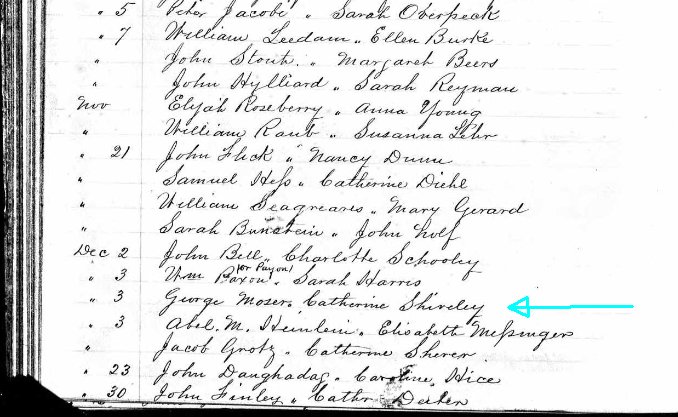 " 5 Peter Jacobi " Sarah Overpeak
" 7 William Leedam " Ellen Burke
" John Stout " Margaret Beers
" John Hylliard " Sarah Reyman
Nov Elijah Roseberry " Anna Young
" William Raub " Susanna Lehr
" 21 John Flick " Nancy Dunn
" Samuel Hess " Catherine Diehl
" William Seagreaves " Mary Gerard
" Sarah " John Wolf
Dec 2 John Bell " Charlotte Schooley
" 3 Wm Paxon (or Payon) " Sarah Harris
" 3 George Moser " Catherine Shireley
" 3 Abel. M. Heinlein " Elisabeth Messinger
" Jacob Grotz " Catherine Sherer
" 23 John " Caroline Hice
" 30 John Finley " Cathr Deeter